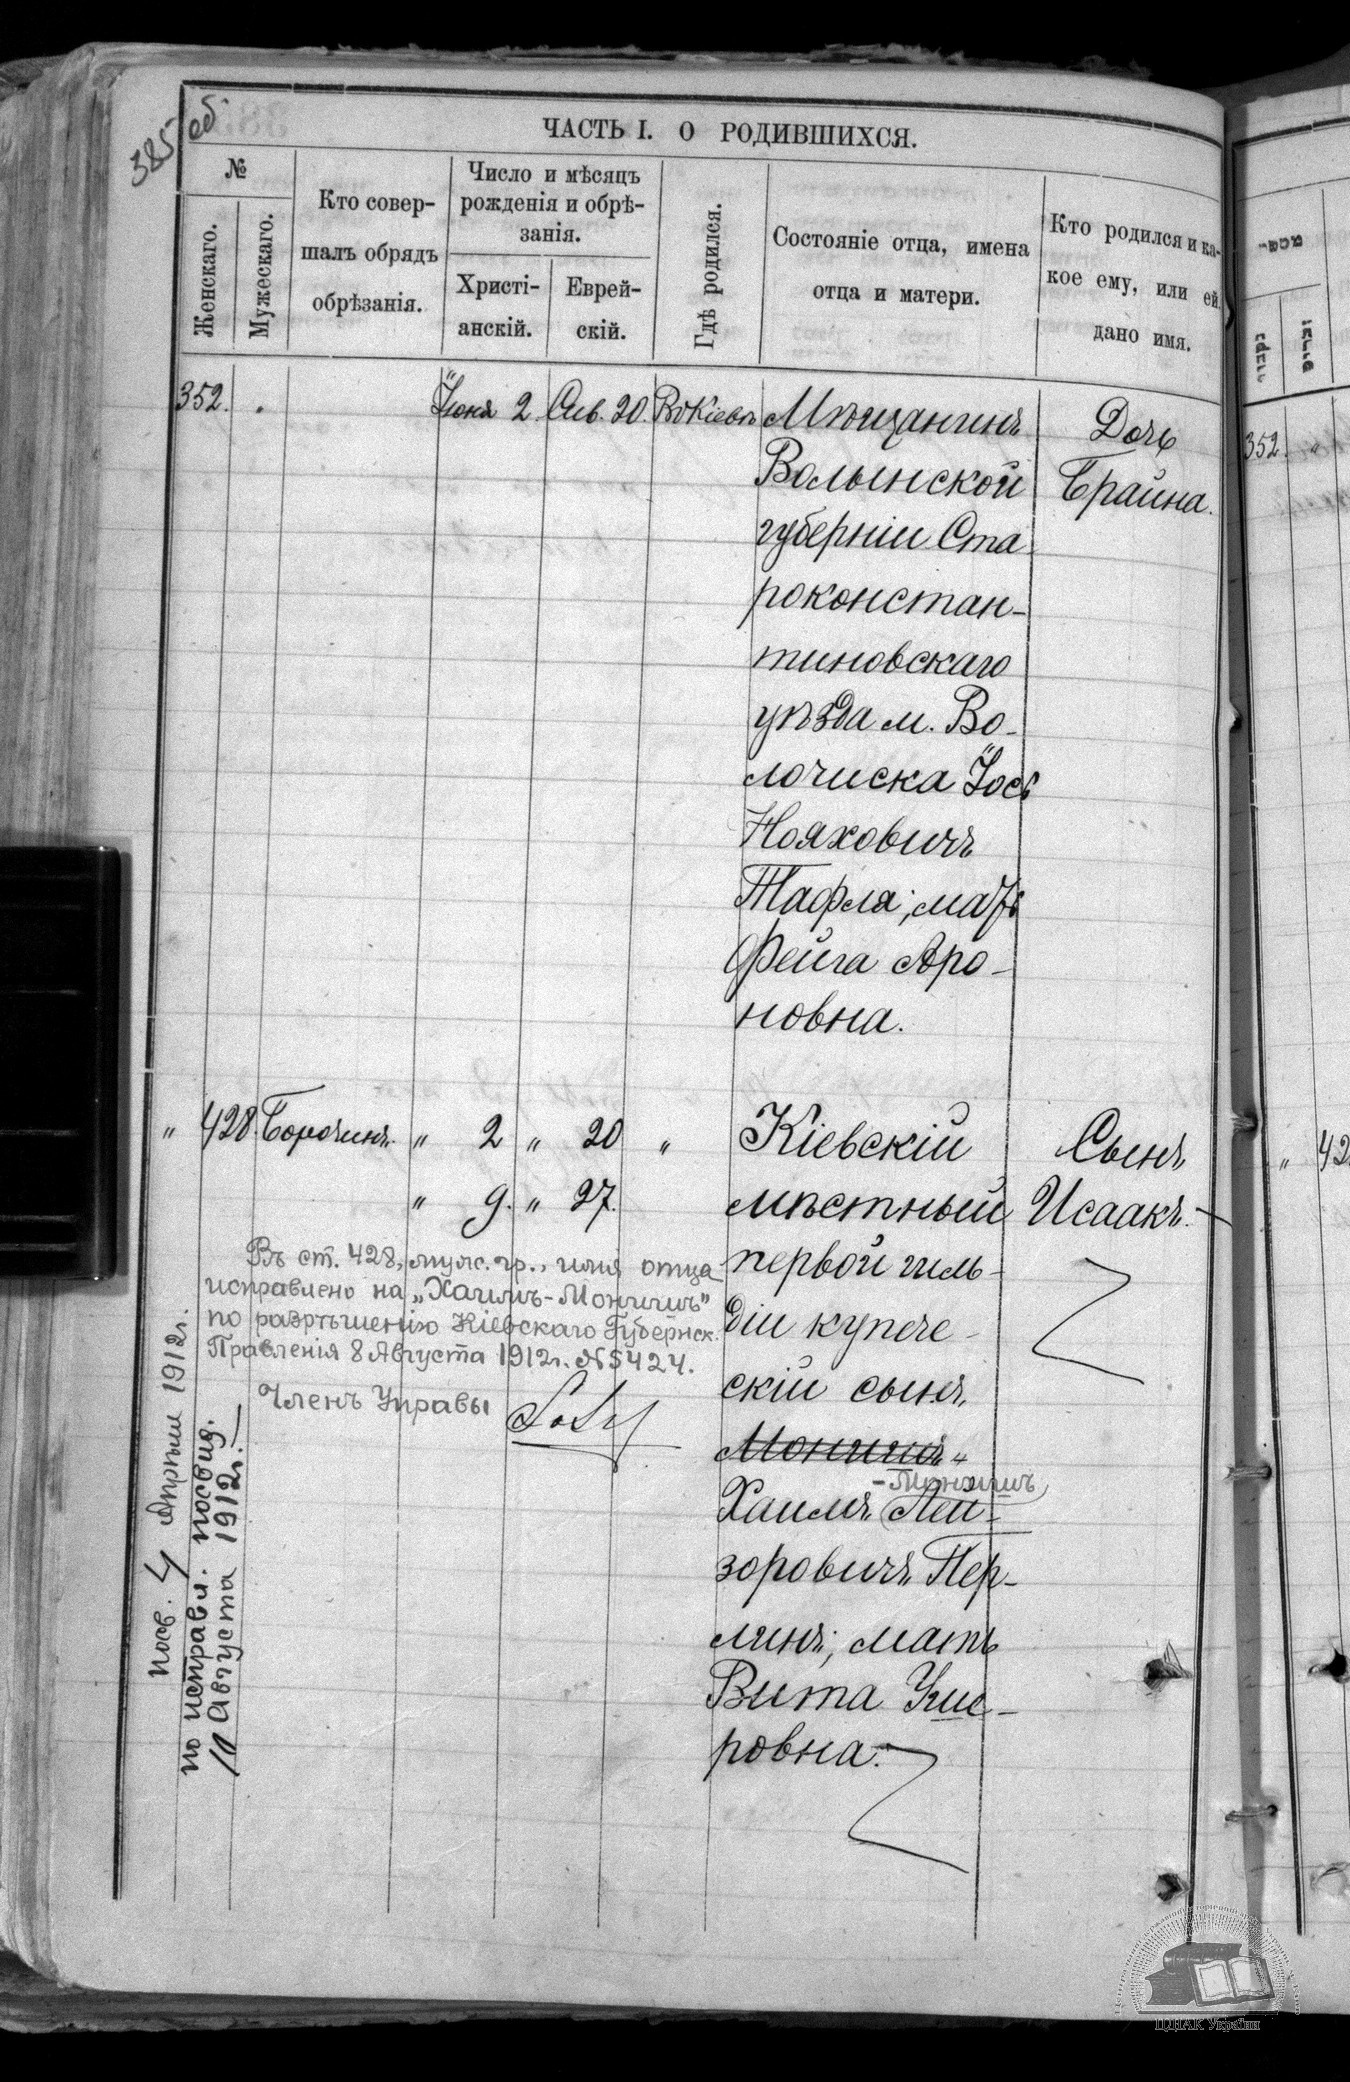 385 об
ЧАСТЬ I. О РОДИВШИХСЯ.
№
Женскаго.
Мужескаго.
Кто совер-
шалъ обрядъ
обрѣзанія.
Число и мѣсяцъ
рожденія и обрѣ-
занія.
Христі-
анскій.
Еврей-
скій.
Гдѣ родился.
Состояніе отца, имена
отца и матери.
Кто родился и ка-
кое ему, или ей
дано имя.
352. Іюня 2. Сив. 20. Въ Кіевѣ
Мѣщанинъ
Волынской
губерніи Ста
роконстан-
тиновскаго
уѣзда м. Во-
лочиска Іось
Нояховичъ
Тафля; мать
Фейга Аро-
новна.
Дочь
Брайна.
" 428. Борочинъ. " 2 " 20 "
" 9. " 27.
Кіевскій
мѣстный
первой гиль-
діи купече-
скій сынъ
Монишъ-
-Монишъ
Хаимъ Лей-
зоровичъ Пер-
линъ; мать
Вита Хис-
ровна.
Сынъ
Исаакъ.
Въ ст. 428, мужс. гр., имя отца
исправлено на „Хаимъ-Монишъ"
по разрѣшенію Кіевскаго Губернск.
Правленія 8 Августа 1912г. № 5424.
Членъ Управы
посв. 4 Апрѣля 1912г.
по исправл. посвид.
10 Августа 1912г.
352. "
" 42
ЦДІАК України